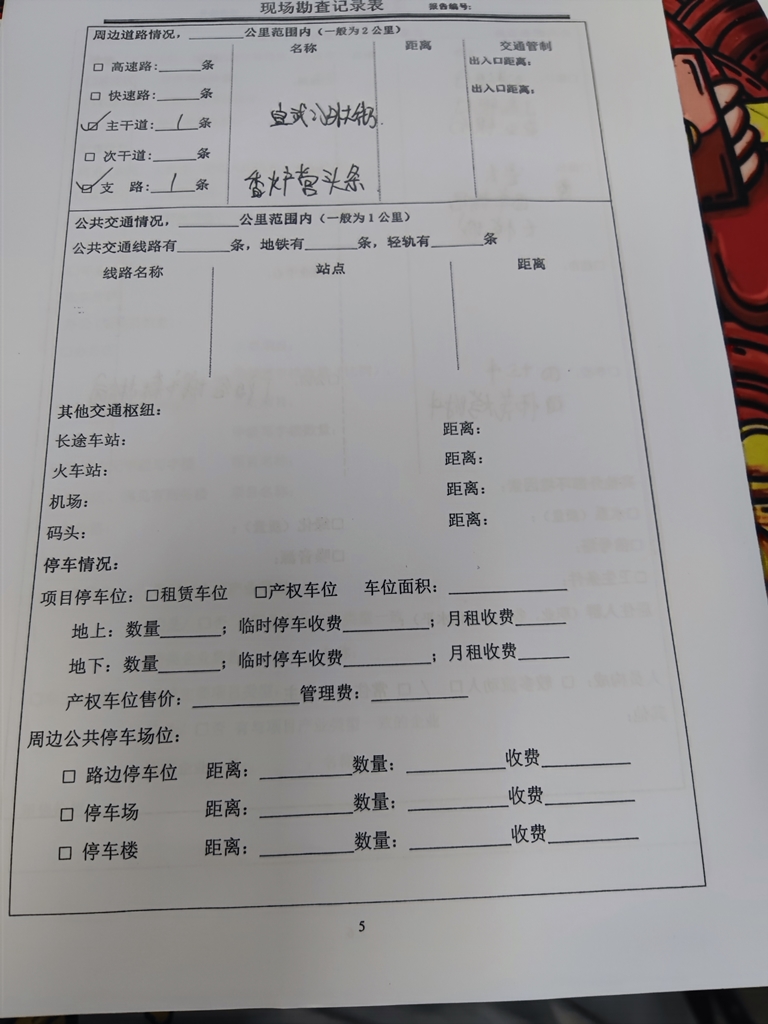 现场勘查记录表 报告编号:
周边道路情况，______公里范围内（一般为2公里）
名称 距离 交通管制
□ 高速路:_____条 出入口距离:
□ 快速路:_____条 出入口距离:
☑ 主干道: 1 条
□ 次干道:_____条
☑ 支 路: 1 条 香炉营头条
公共交通情况，______公里范围内（一般为1公里）
公共交通线路有______条，地铁有______条，轻轨有______条
线路名称 站点 距离
其他交通枢纽:
长途车站: 距离:
火车站: 距离:
机场: 距离:
码头: 距离:
停车情况:
项目停车位: □租赁车位 □产权车位 车位面积:____________
地上: 数量______; 临时停车收费________; 月租收费_____
地下: 数量______; 临时停车收费________; 月租收费_____
产权车位售价:__________管理费:_________
周边公共停车场位:
□ 路边停车位 距离:_________数量:_________收费________
□ 停车场 距离:_________数量:_________收费________
□ 停车楼 距离:_________数量:_________收费________
5